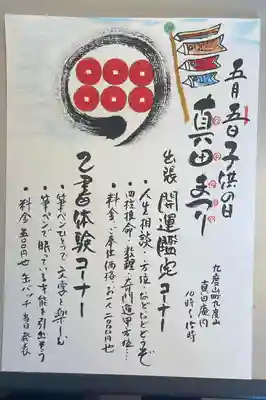 五月五日子供の日
真田まつり
九度山町九度山
真田庵内
10時〜15時
出張 開運鑑定コーナー
・人生相談…方位…などなどどうぞ
・四柱推命…数理…奇門遁甲方位…
・料金…奉仕価格…お一人二〇〇〇円也
乙書体験コーナー
・筆ペンひとつで文字を楽しむ
・筆ペンで眠っている才能を引出そう
・料金 五〇〇円也 缶バッチ 当日発表